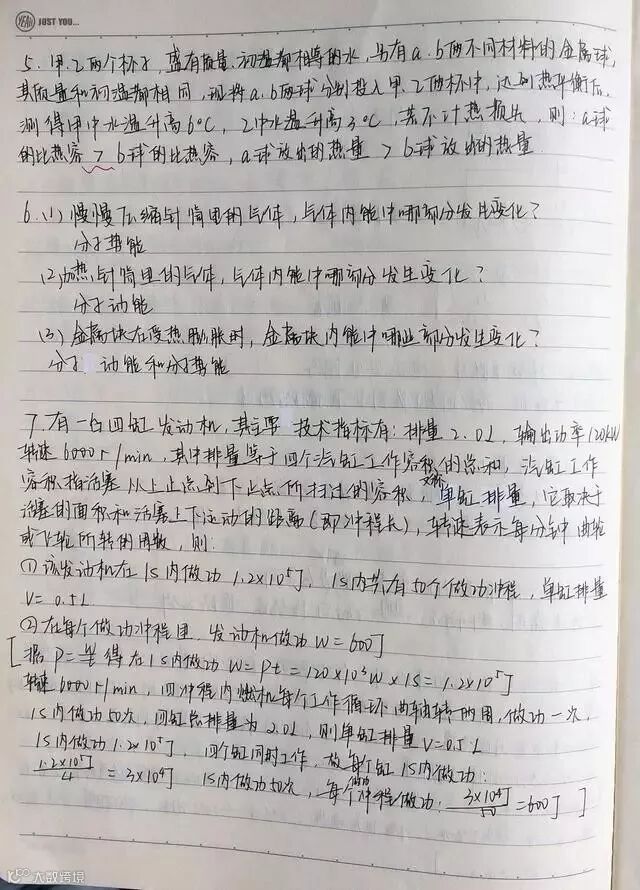 YEAH JUST YOU...
5. 甲、乙两个杯子，盛有质量、初温都相等的水，另有a、b两不同材料的金属球，
其质量和初温都相同，现将a、b两球分别投入甲、乙两杯中，达到热平衡后，
测得甲中水温升高6°C，乙中水温升高3°C，若不计热损失，则：a球
的比热容 > b球的比热容，a球放出的热量 > b球放出的热量
6.(1) 慢慢压缩针筒里的气体，气体内能中哪部分发生变化？
分子势能
(2)加热针筒里的气体，气体内能中哪部分发生变化？
分子动能
(3) 金属块在受热膨胀时，金属块内能中哪些部分发生变化？
分子 动能和分子势能
7. 有一台四缸发动机，其主要 技术指标有：排量2.0L，输出功率120kW
转速6000r/min，其中排量等于四个汽缸工作容积的总和，汽缸工作
容积指活塞从上止点到下止点所扫过的容积，又称单缸排量，它取决于
活塞的面积和活塞上下运动的距离（即冲程长），转速表示每分钟曲轴
或飞轮所转的周数，则：
①该发动机在1s内做功1.2×10⁵J，1s内共有50个做功冲程，单缸排量
V=0.5L
②在每个做功冲程里，发动机做功W=600J
[据P=W/t得在1s内做功W=Pt=120×10³W×1s=1.2×10⁵J
转速6000r/min，四冲程内燃机每个工作循环曲轴转两周，做功一次，
1s内做功50次，四缸总排量为2.0L，则单缸排量V=0.5L
1s内做功1.2×10⁵J，四个缸同时工作，故每个缸1s内做功：
1.2×10⁵J/4=3×10⁴J 1s内做功50次，每个做功冲程做功：3×10⁴J/50=600J ]
大数跨境